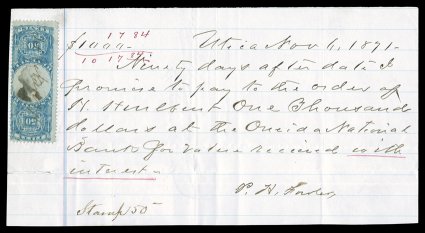 $1000- 17 84
10 17 84
Utica Nov 6, 1871-
Ninety days after date I
promise to pay to the order of
H Hurlburt One Thousand
dollars at the Oneida National
Bank for value received with
interest-
P. H.
Stamp 50